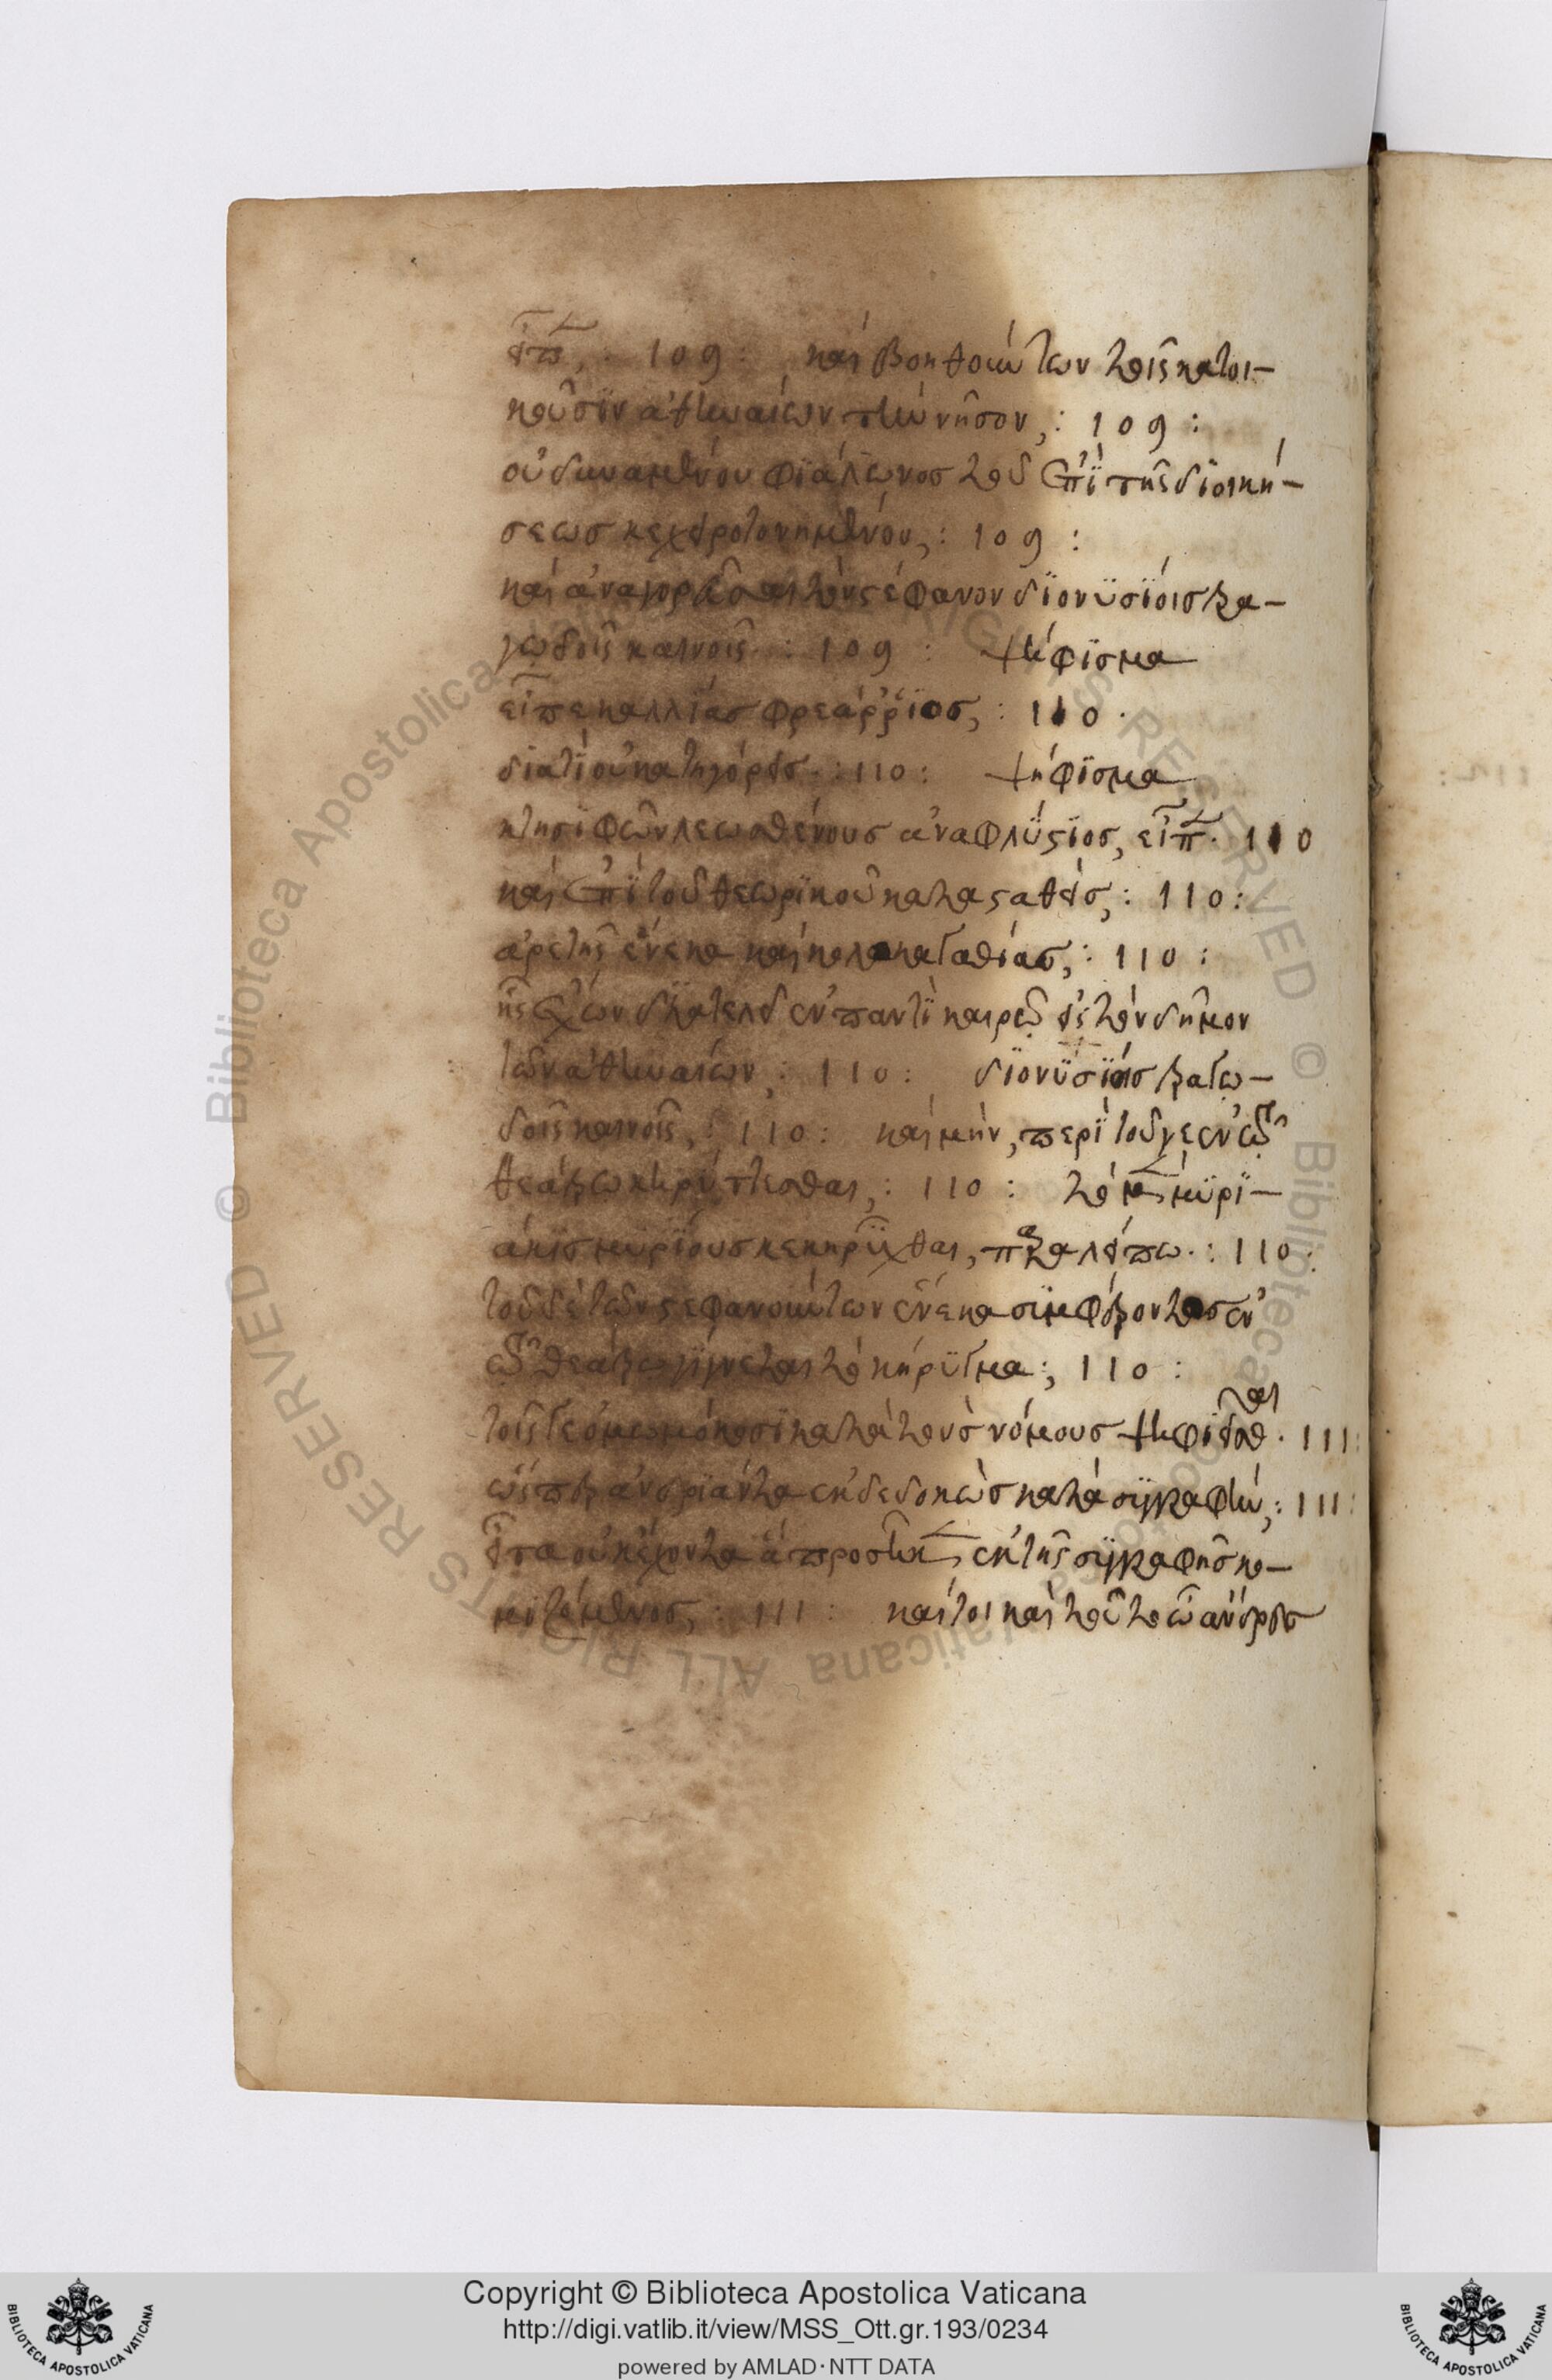 εἶπ, : 109 : καὶ βοηθούντων τοῖς κατοι-
κοῦσϊν ἀθηναίων τὴν νῆσον, : 109 :
οὐ δυναμένου φϊάλωνος τοῦ ἐπῒ τῆς δϊοική-
σεως κεχειροτονημένου, : 109 :
καὶ ἀναγορεῦσαι τὸν στέφανον δϊονϋσϊοις τρα-
γῳδοῖς καινοῖς : 109 : ψήφϊσμα
εἶπε καλλίας φρεάρριος, : 110 .
διατί οὐ κατηγόρεις . : 110 : ψήφϊσμα
κτησϊφῶν λεωσθένους ἀναφλύστϊος, εἶπ . 110
καὶ ἐπῒ τοῦ θεωρϊκοῦ κατασταθεὶς, : 110 :
ἀρετῆς ἕνεκα καὶ καλοκαγαθίας, : 110 :
ἧς ἔχων δϊατελεῖ ἐν παντὶ καιρῷ εἰς τὸν δῆμον
τῶν ἀθηναίων, : 110 : δϊονϋσϊοις τραγω-
δοῖς καινοῖς, : 110 : καὶ μὴν, περὶ τοῦ γε ἐν τῷ
θεάτρω κηρύττεσθαι, : 110 : τὸ μ μυρϊ-
άκϊς μυρίους κεκηρῦχθαι, παραλείπω . : 110 :
τοῦ δὲ τῶν στεφανούντων ἕνεκα συμφέροντος ἐν
τῷ θεάτρω γίγνεται τὸ κήρυγμα :, 110 :
τοῖς γε ὀμωμόκοσϊ κατὰ τοὺς νόμους ψηφϊεῖσθαι . 111 :
ὥσπερ ἀνδρϊάντα ἐκδεδοκὼς κατὰ συγγραφὴν, : 111 :
εἶτα οὐκ ἔχοντα ἃ προσῆκ, ἐκ τῆς συγγραφῆς κο-
μιζόμενος, : 111 : καίτοι καὶ τοῦτο ὦ ἄνδρες
Copyright © Biblioteca Apostolica Vaticana
http://digi.vatlib.it/view/MSS_Ott.gr.193/0234
powered by AMLAD·NTT DATA